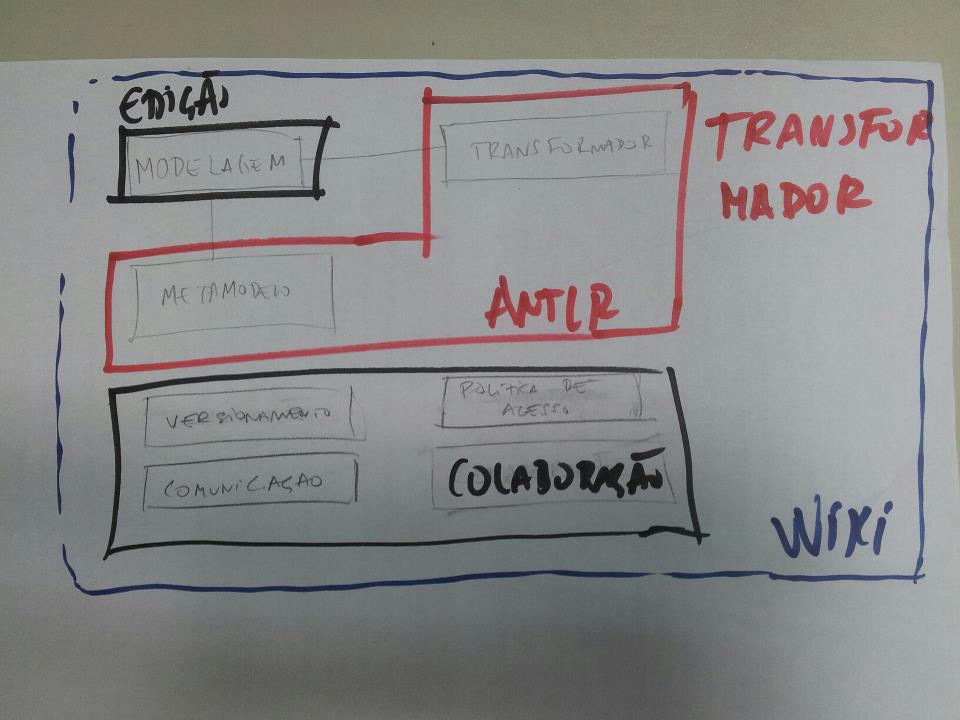 EDIÇÃO
MODELAGEM
TRANSFORMADOR
TRANSFOR
MADOR
METAMODELO
ANTLR
VERSIONAMENTO
POLÍTICA DE
ACESSO
COMUNICAÇAO
COLABORAÇÃO
WiKi